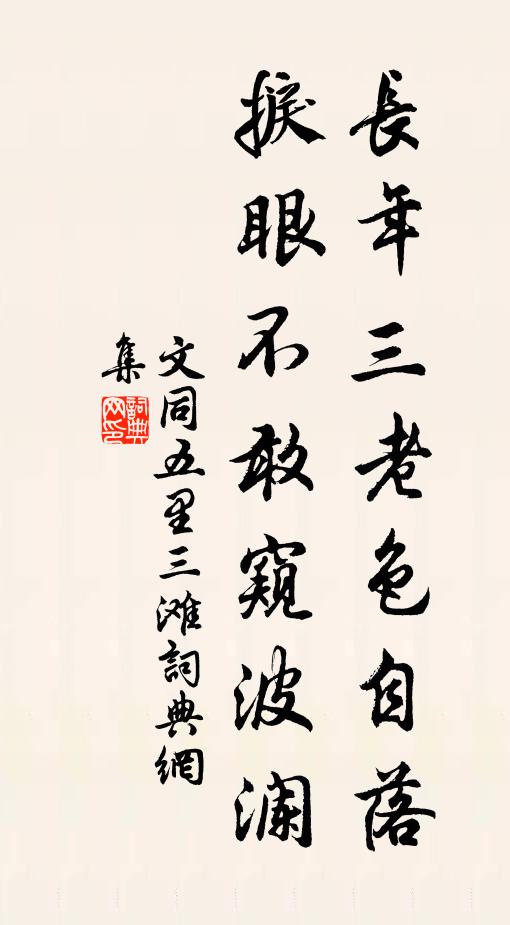 長年三老色自落
捩眼不敢窺波澜
文同五里三滩詞典網
集
詞典网印